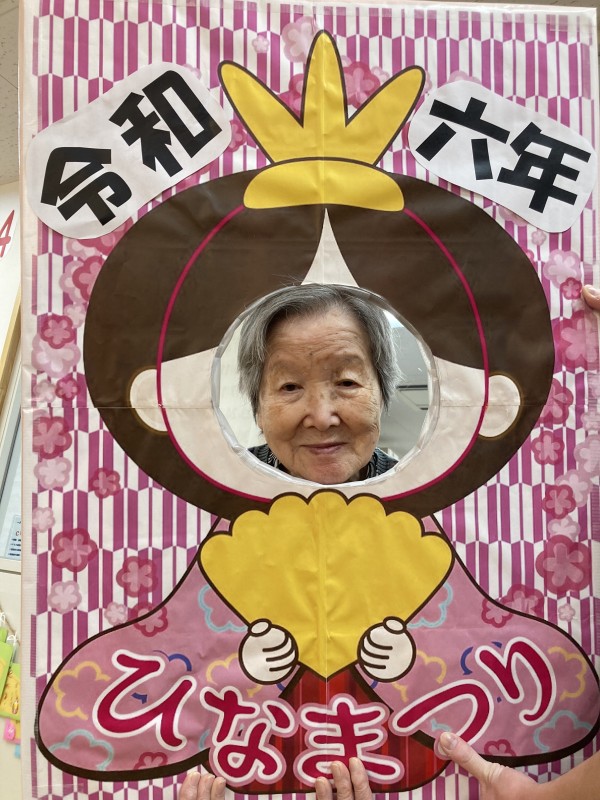 令和
六年
ひなまつり